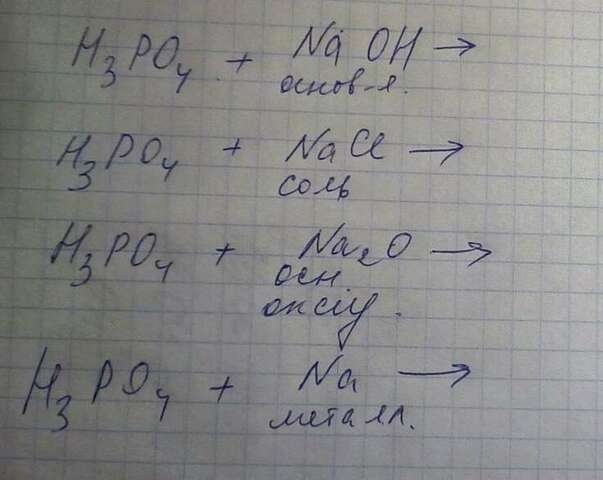 H₃PO₄ + NaOH →
основ-я.
H₃PO₄ + NaCl →
соль
H₃PO₄ + Na₂O →
осн
оксид.
H₃PO₄ + Na →
металл.